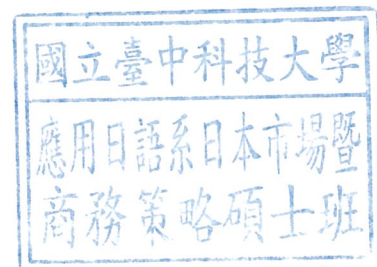 國立臺中科技大學
應用日語系日本市場暨
商務策略碩士班